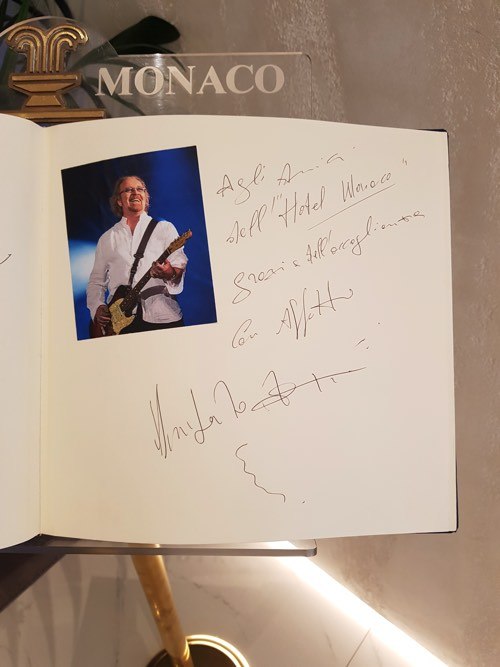 MONACO
Agli Amici
dell'"Hotel Monaco"
grazie dell'accoglienza
Con Affetto